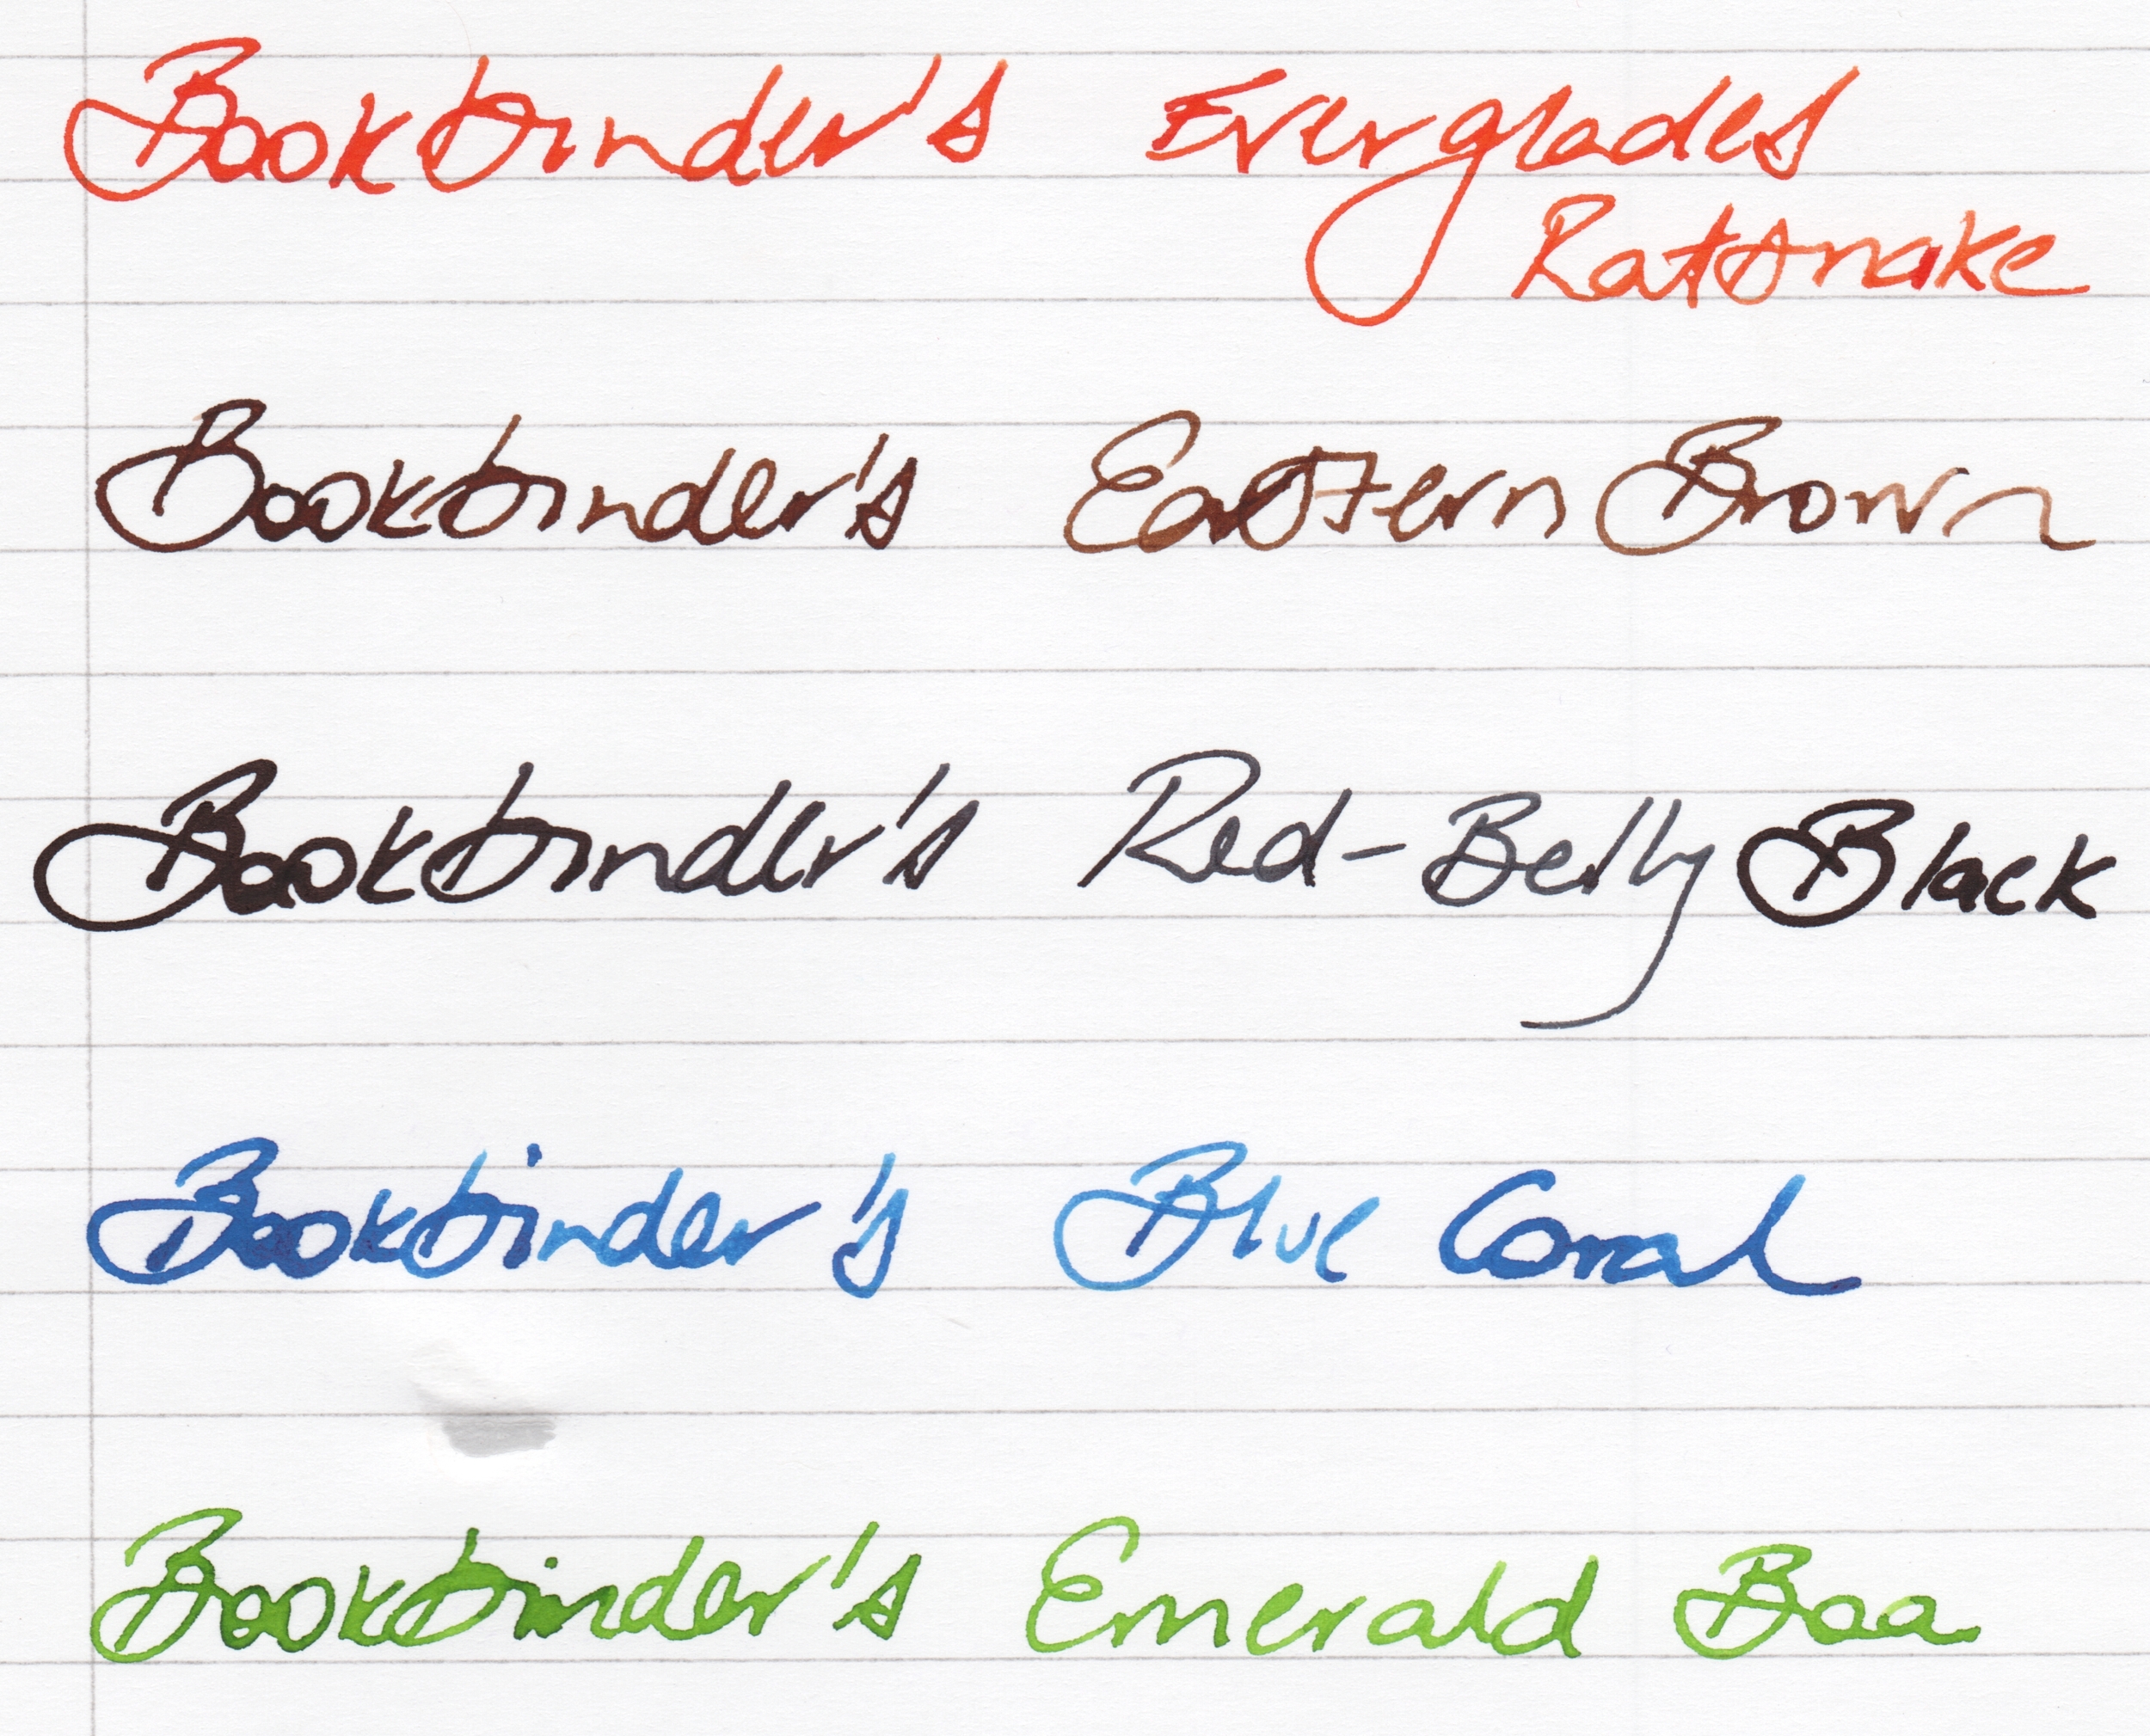 Bookbinder's Everglades
Ratsnake
Bookbinder's Eastern Brown
Bookbinder's Red-Belly Black
Bookbinder's Blue Coral
Bookbinder's Emerald Boa